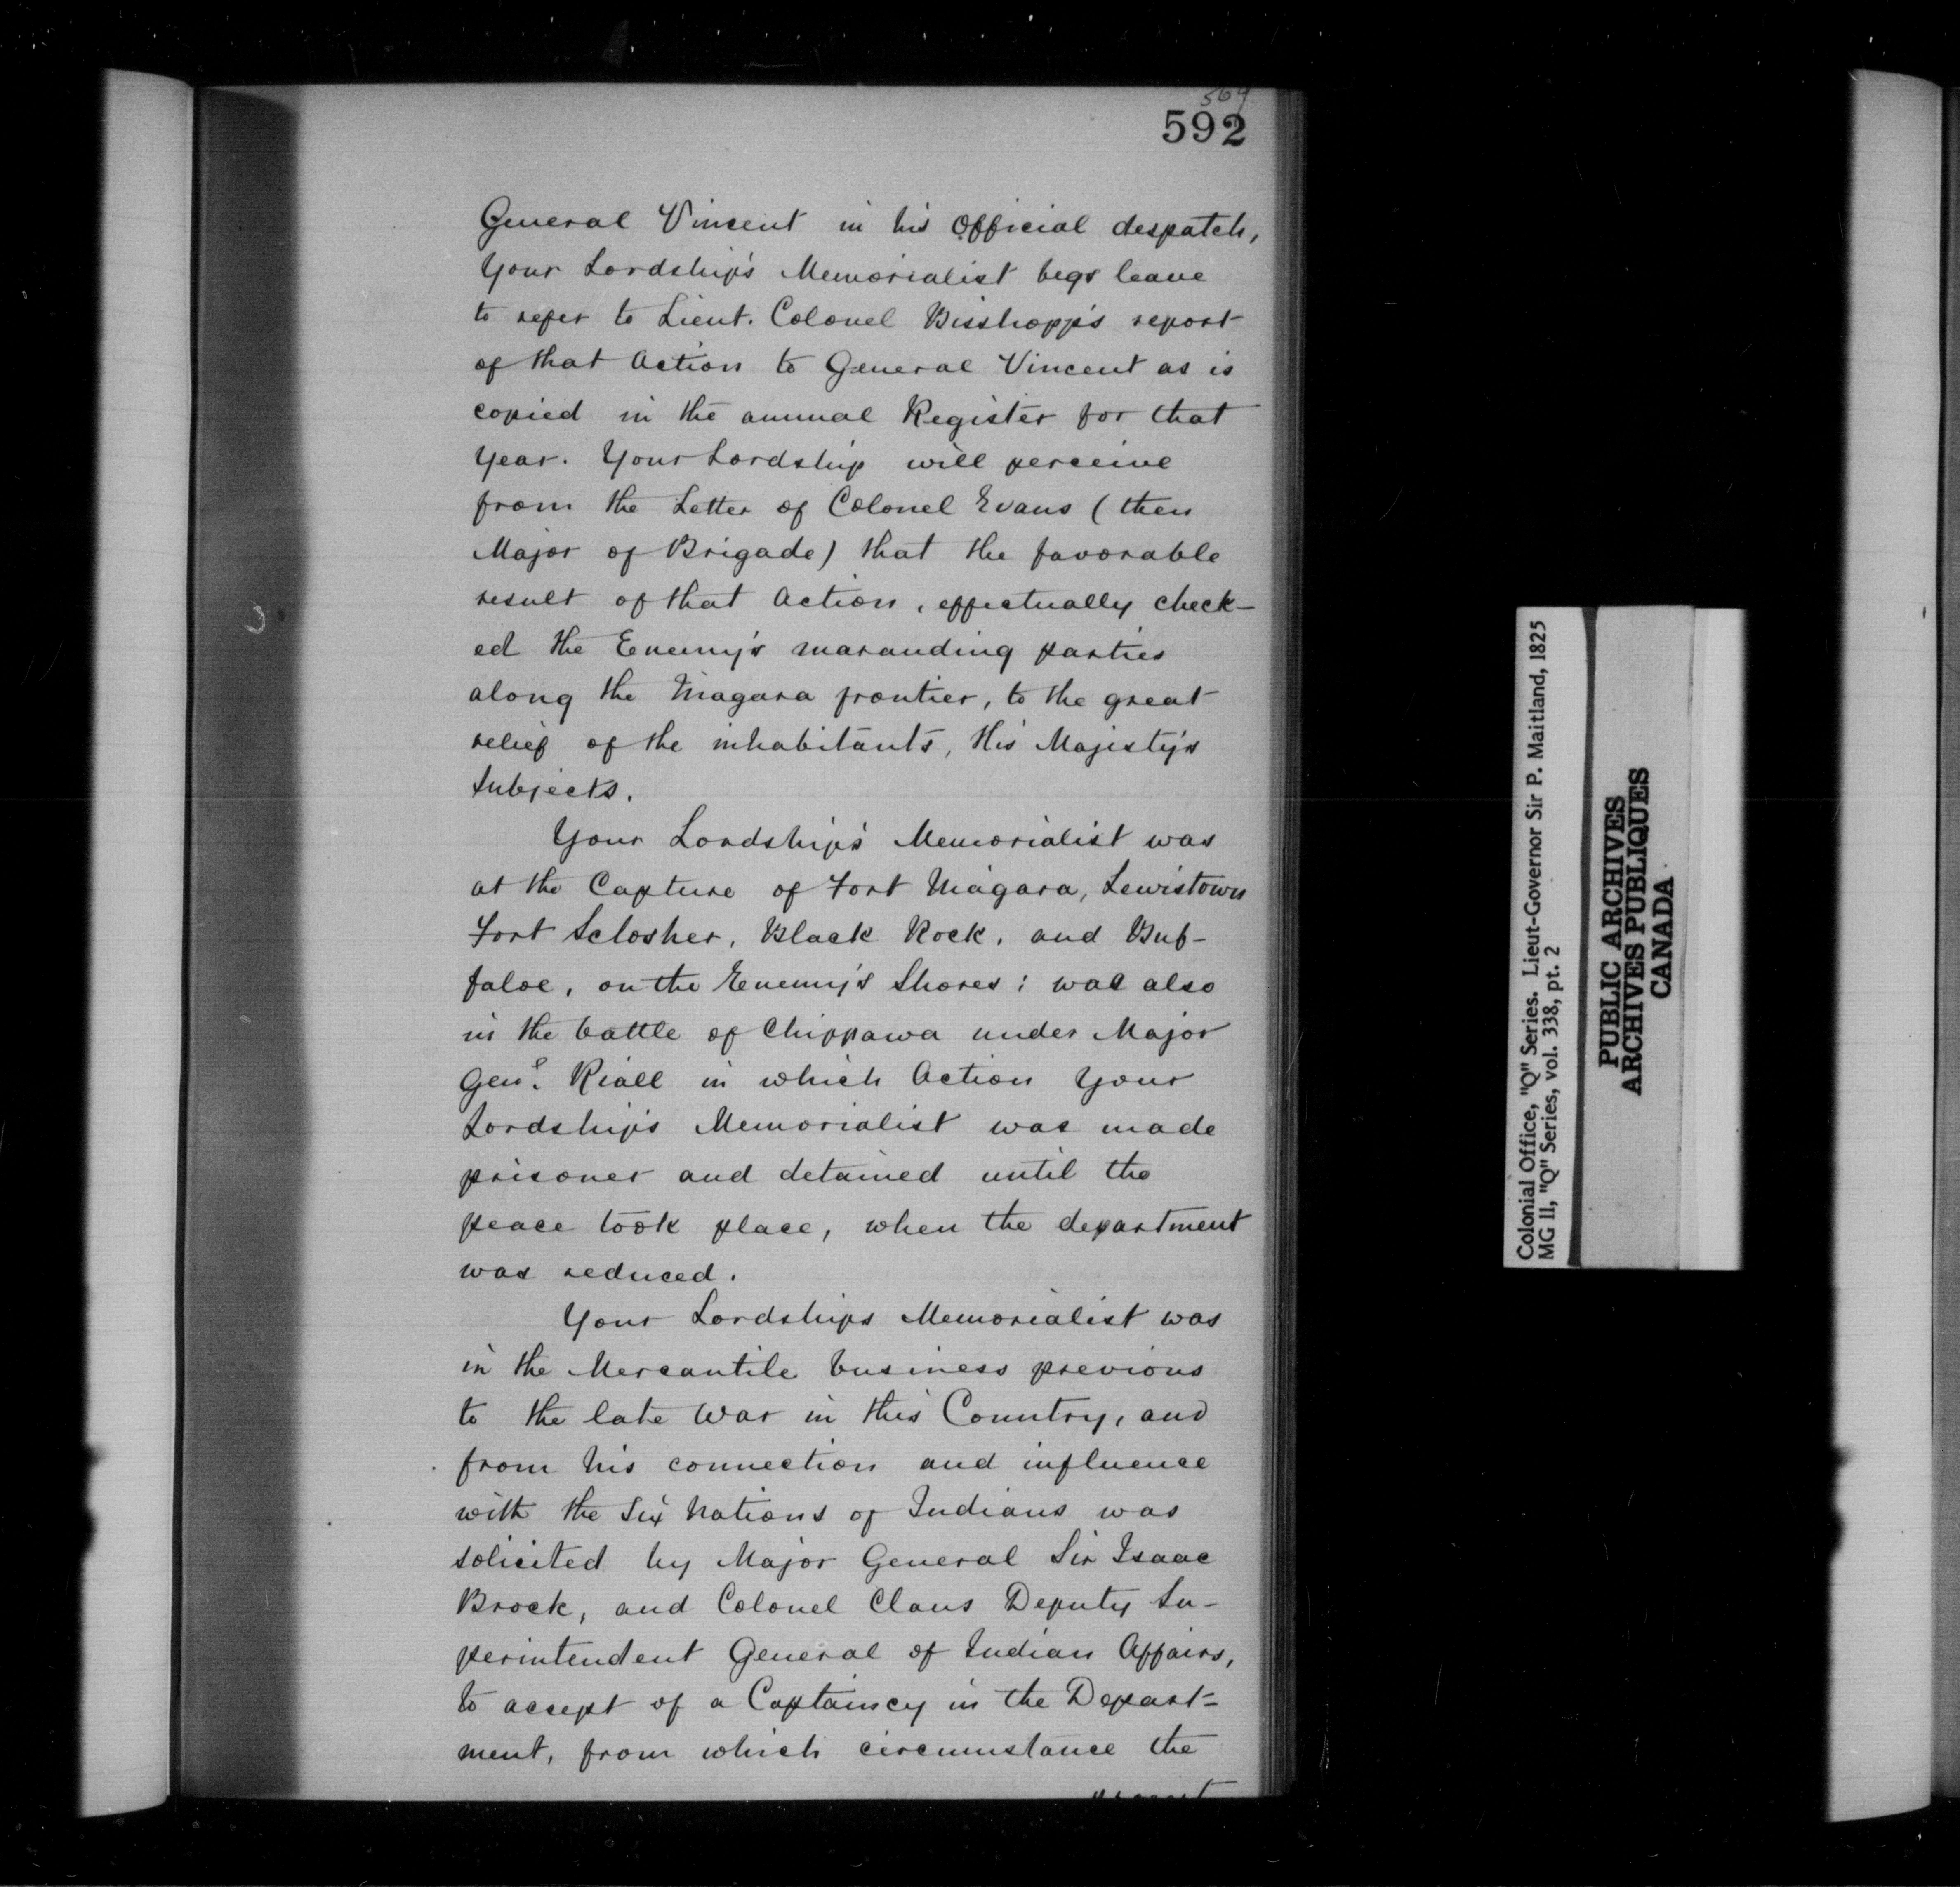 569
592
General Vincent in his Official despatch,
Your Lordship's Memorialist begs leave
to refer to Lieut. Colonel Bisshopp's report
of that Action to General Vincent as is
copied in the annual Register for that
Year. Your Lordship will perceive
from the Letter of Colonel Evans (then
Major of Brigade) that the favorable
result of that Action, effectually check-
ed the Enemy's marauding parties
along the Niagara frontier, to the great
relief of the inhabitants, His Majesty's
Subjects.
Your Lordship's Memorialist was
at the Capture of Fort Niagara, Lewistown
Fort Sclosher, Black Rock, and Buf-
faloe, on the Enemy's Shores; was also
in the battle of Chippawa under Major
Genl. Riall in which Action Your
Lordship's Memorialist was made
prisoner and detained until the
peace took place, when the department
was reduced.
Your Lordships Memorialist was
in the Mercantile business previous
to the late War in this Country, and
from his connection and influence
with the Six Nations of Indians was
solicited by Major General Sir Isaac
Brock, and Colonel Claus Deputy Su-
perintendent General of Indian Affairs,
to accept of a Captaincy in the Depart-
ment, from which circumstance the
Colonial Office, "Q" Series. Lieut-Governor Sir P. Maitland, 1825
MG 11, "Q" Series, vol. 338, pt. 2
PUBLIC ARCHIVES
ARCHIVES PUBLIQUES
CANADA